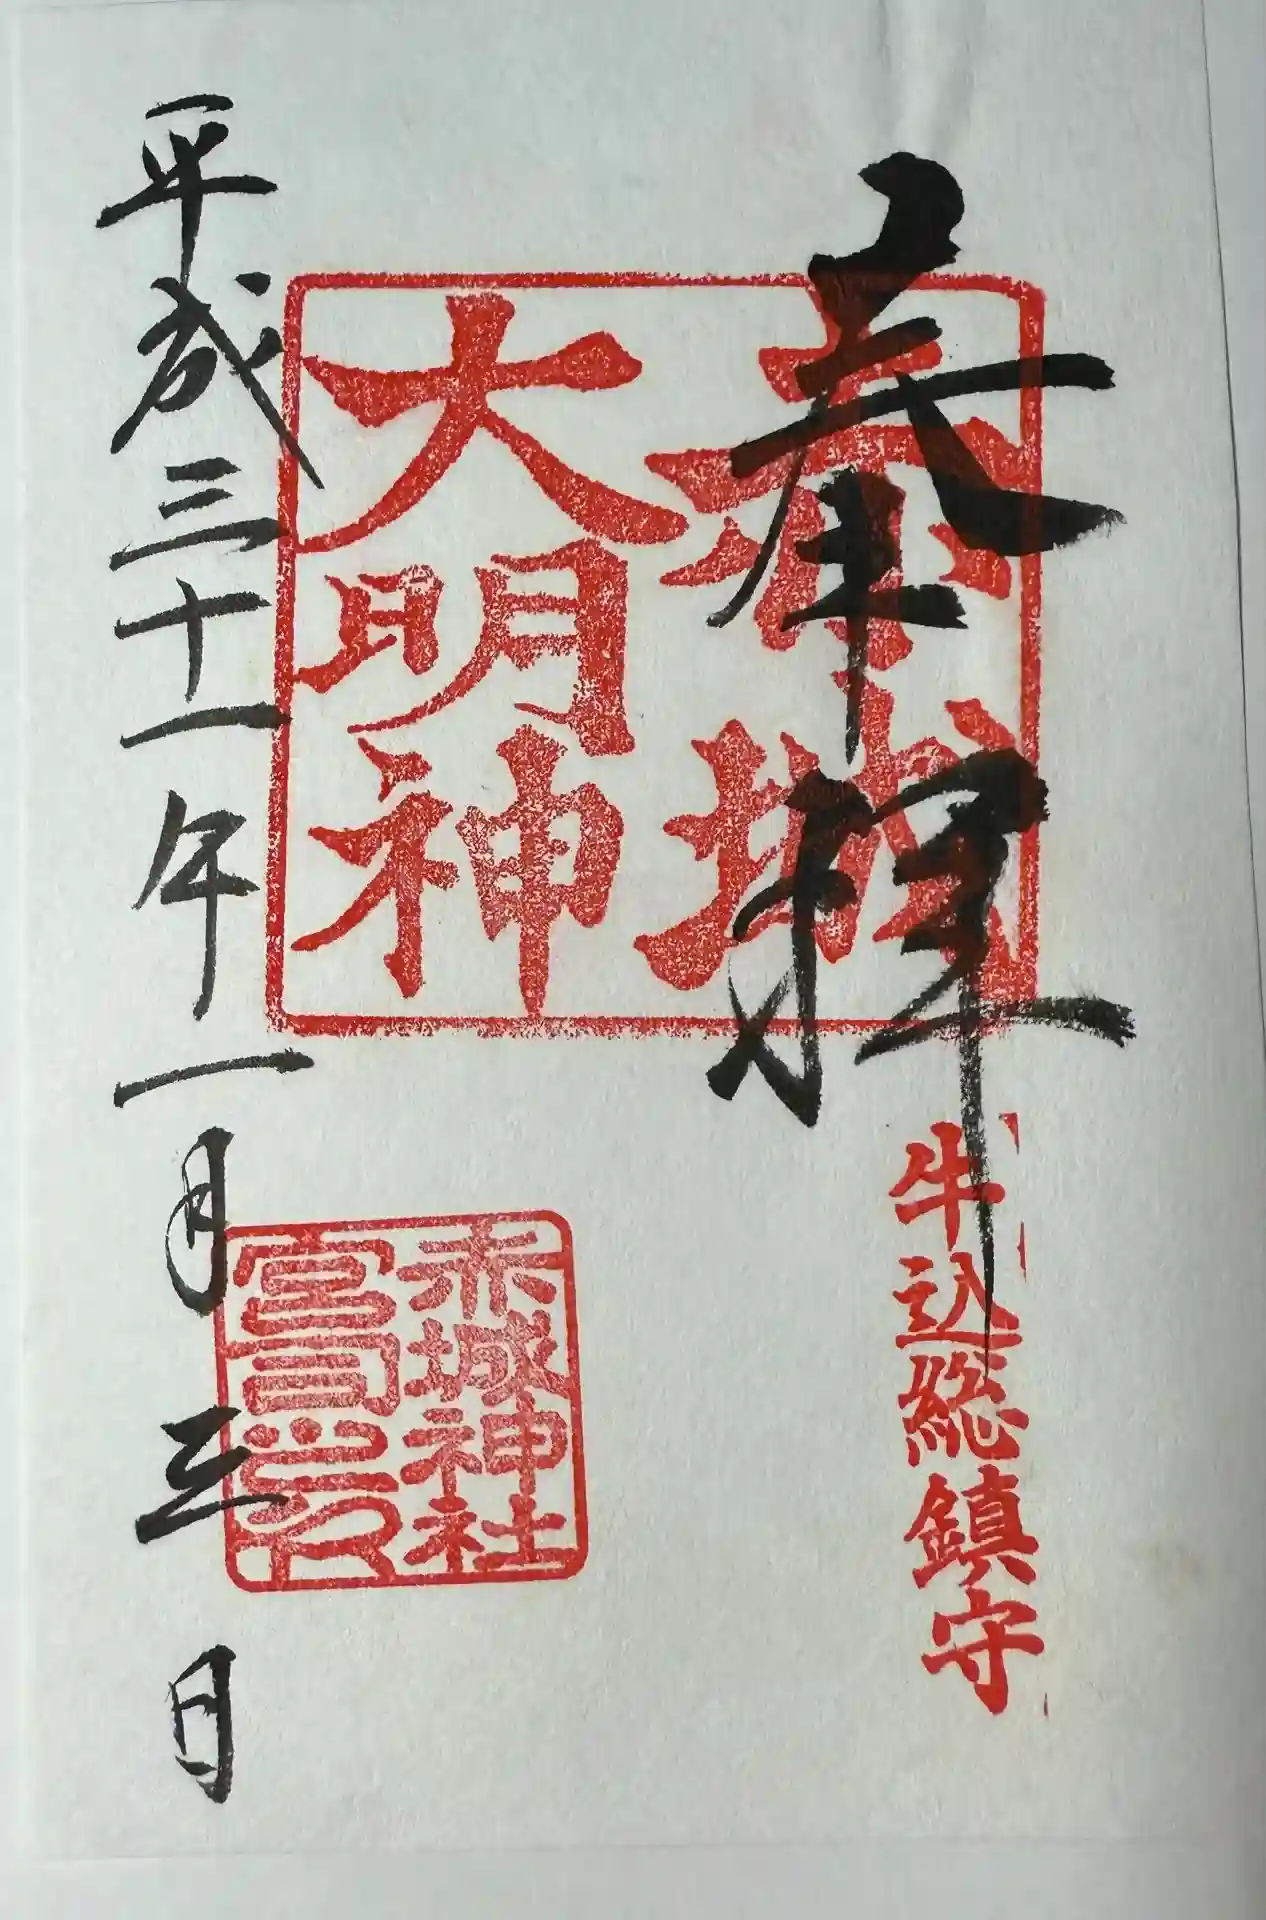 奉拝
赤城
大明神
牛込総鎮守
赤城神社
宮司之印
平成三十一年一月三日